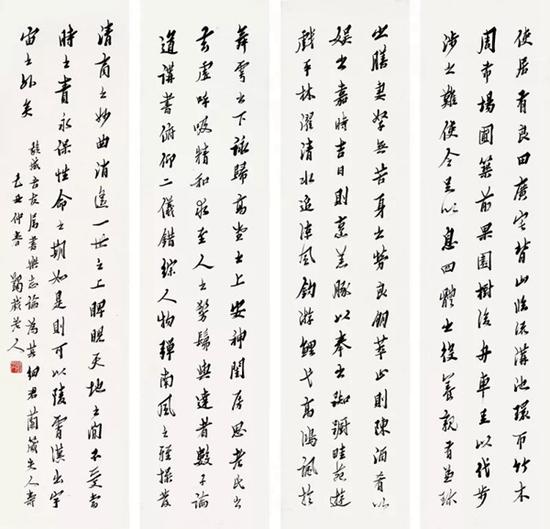 使居有良田廣宅背山臨流溝池環帀竹木
周布場圃築前果園樹後舟車足以代步
涉之難使令足以息四體之役養親有兼珍
之膳妻孥無苦身之勞良朋萃止則陳酒肴以
娱之嘉時吉日則烹羔豚以奉之踟躕畦苑遊
戲平林濯清水追涼風釣游鯉弋高鴻諷於
舞雩之下詠歸高堂之上安神閨房思老氏之
玄虛呼吸精和求至人之髣髴與達者數子論
道講書俯仰二儀錯綜人物彈南風之雅操發
清商之妙曲消遥一世之上睥睨天地之間不受當
時之責永保性命之期如是則可以陵霄漢出宇
宙之外矣
吉友屬書樂志論為其細君蘭箴夫人壽
仲春 老人